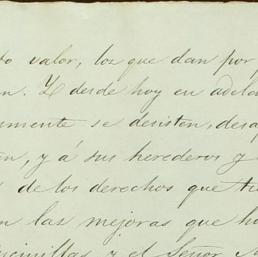 to valor, los que dan por
n. Y desde hoy en adela
mente se desisten, desap
en, y á sus herederos y
de los derechos que t
n las mejoras que h
y el Señor